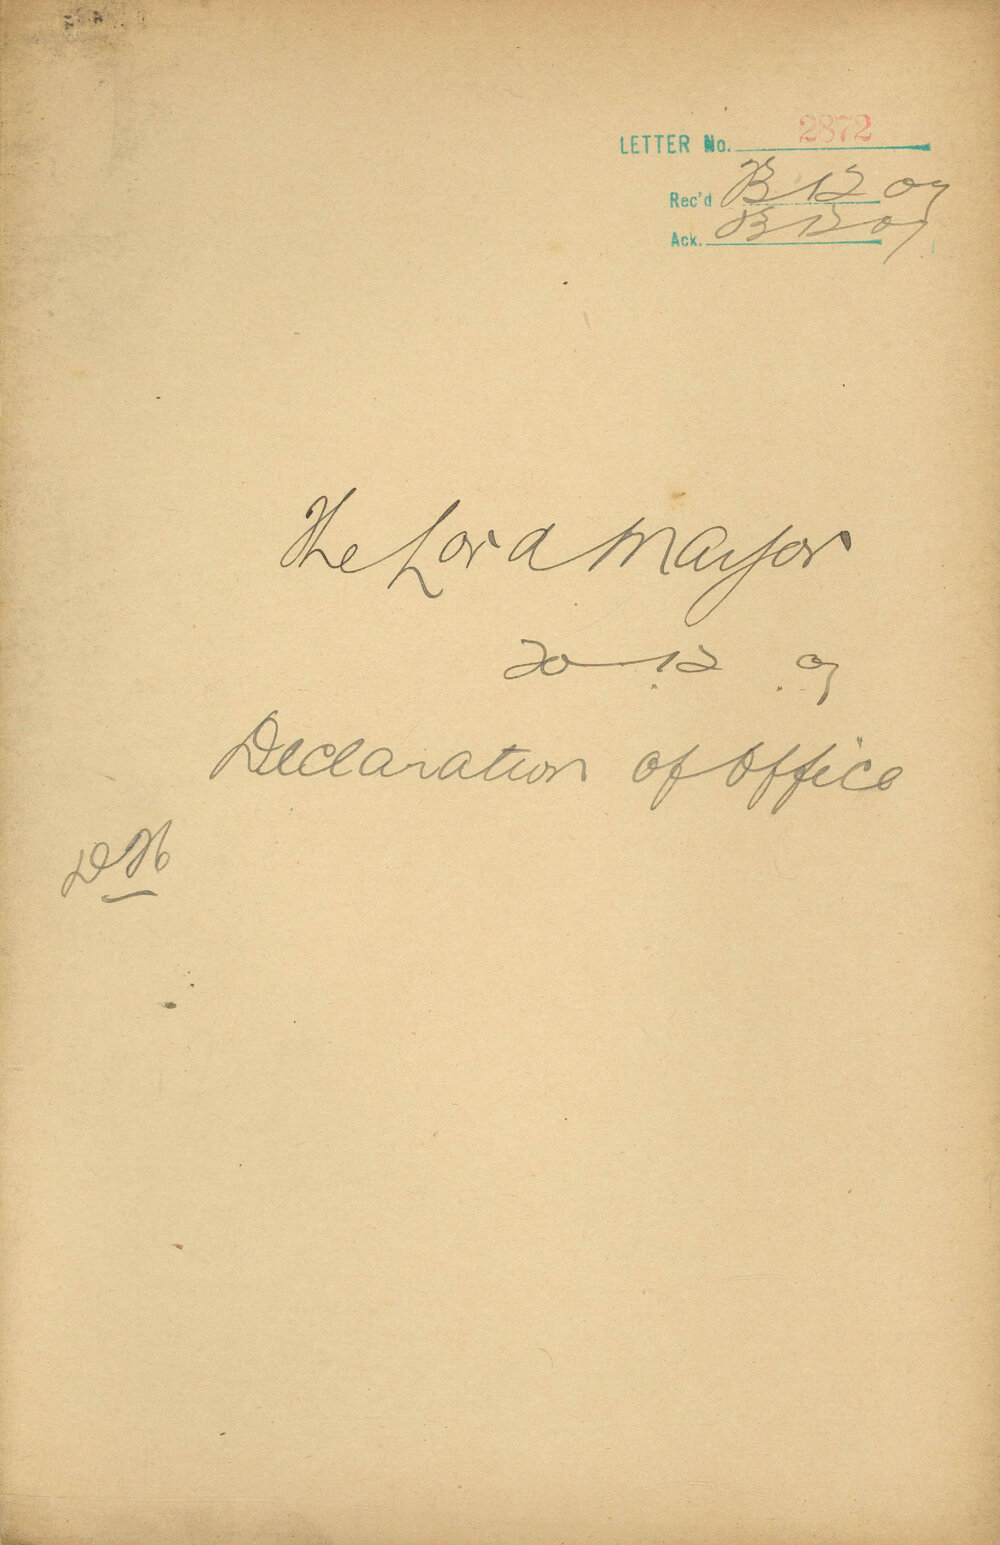 LETTER No. 2872
Rec'd 12 09
Ack. 12 09
The Lord Mayor
20 12 09
Declaration of Office
DH